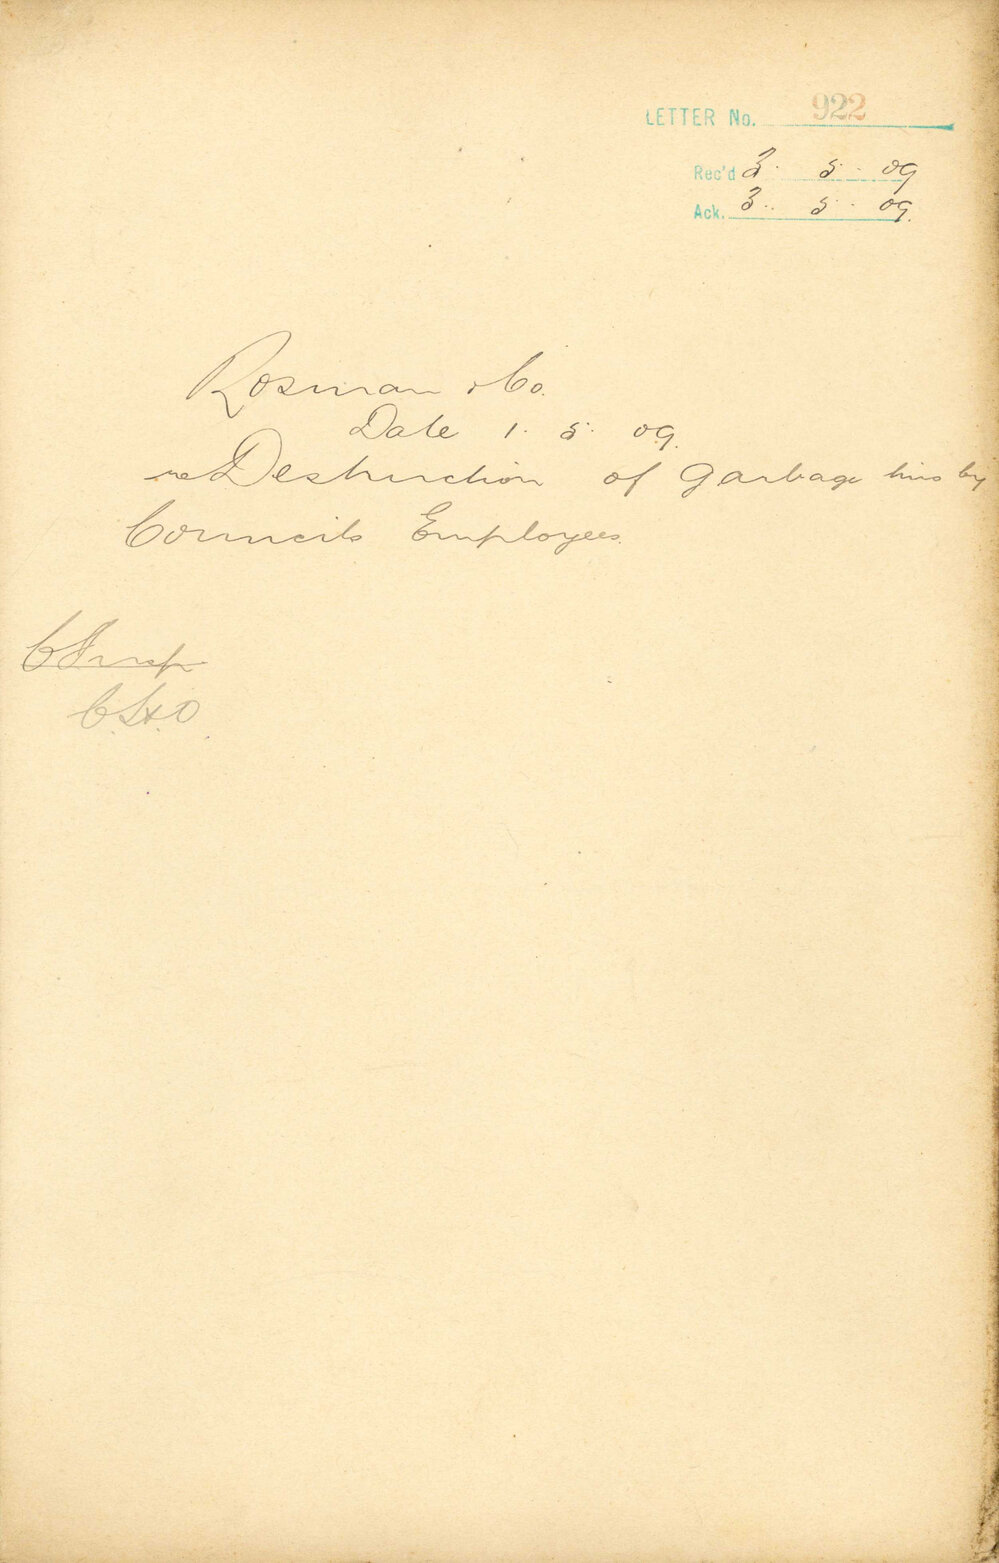 LETTER No. 922
Rec'd 3. 5. 09
Ack. 3. 5. 09.
Rosman & Co.
Date 1. 5. 09.
re Destruction of Garbage bins by
Councils Employees.
C Insp
C.H.O.